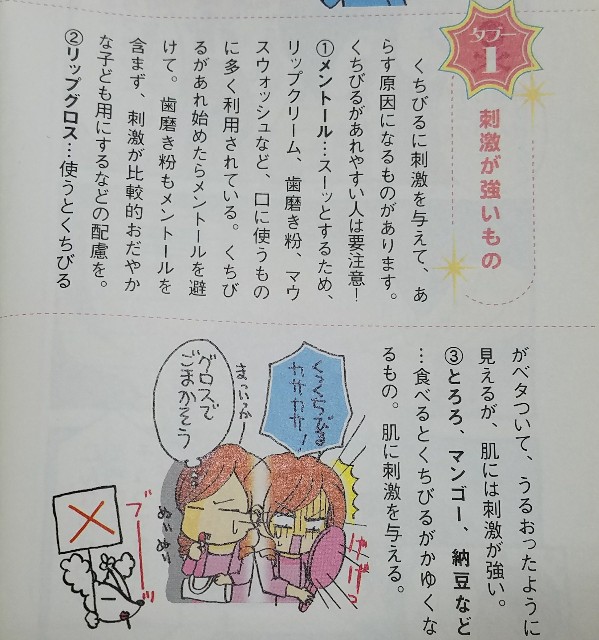 タブー
1
刺激が強いもの
くちびるに刺激を与えて、あ
らす原因になるものがあります。
くちびるがあれやすい人は要注意！
①メントール…スーッとするため、
リップクリーム、歯磨き粉、マウ
スウォッシュなど、口に使うもの
に多く利用されている。くちび
るがあれ始めたらメントールを避
けて。歯磨き粉もメントールを
含まず、刺激が比較的おだやか
な子ども用にするなどの配慮を。
②リップグロス…使うとくちびる
がベタついて、うるおったように
見えるが、肌には刺激が強い。
③とろろ、マンゴー、納豆など
…食べるとくちびるがかゆくな
るもの。肌に刺激を与える。
くっくちびる
カサカサ！
げげっ
まっいっか
グロスで
ごまかそう
ぬりぬり
ブーーッ